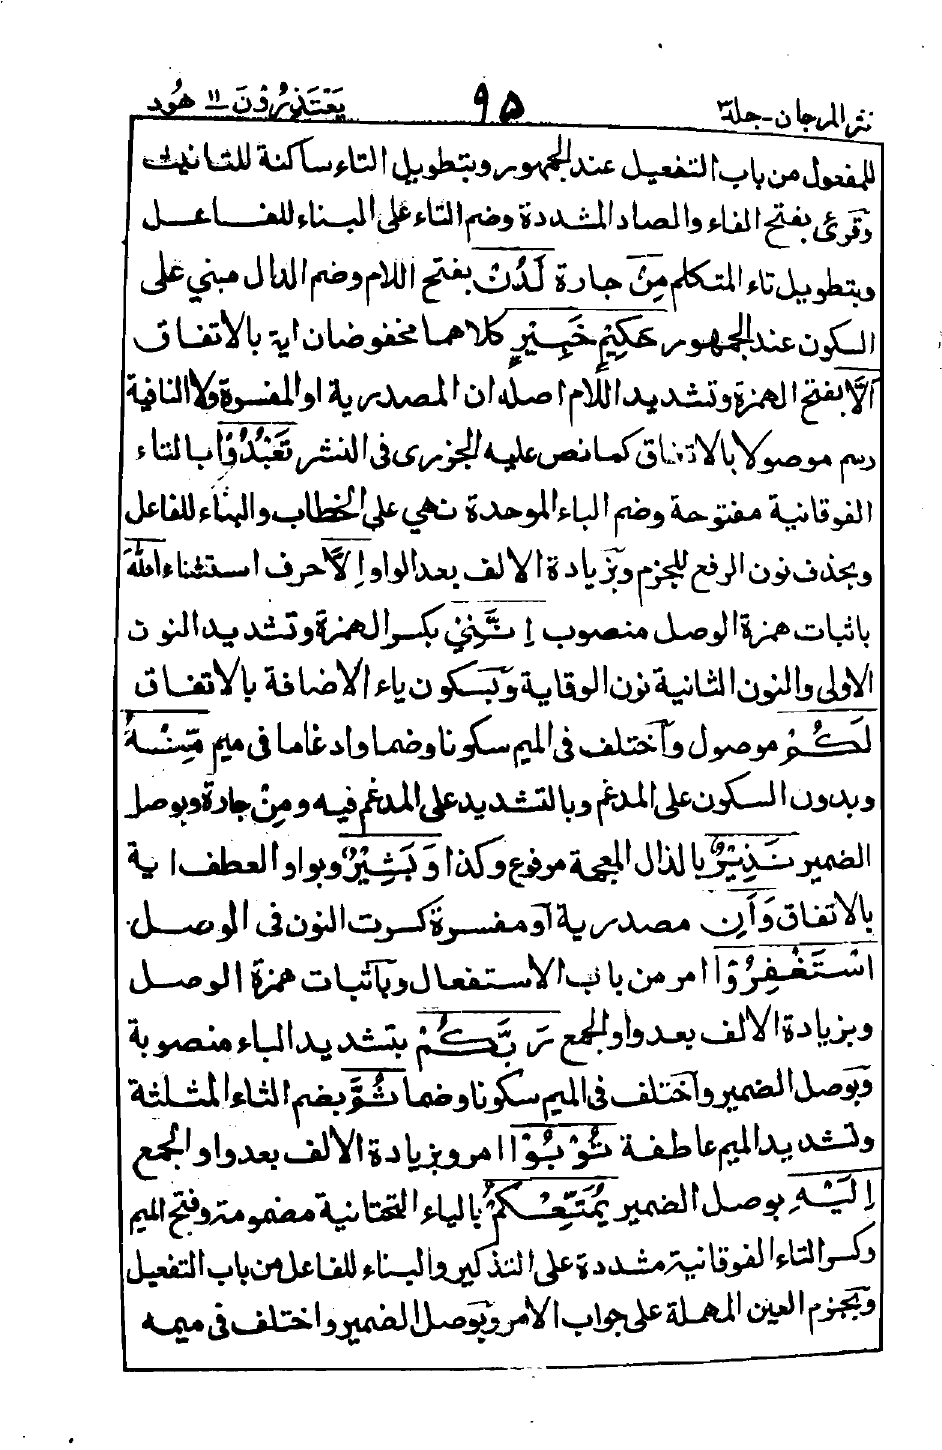 نثر المرجان - جلد٣ ٩٥ يَعْتَذِرُوْنَ ١١ هُود
للمفعول من باب التفعيل عند الجمهور وبتطويل التاء ساكنة للتانيث
وقرئ بفتح الفاء والصاد المشددة وضم التاء على البناء للفاعل
وبتطويل تاء المتكلم مِنْ جارة لَدُنْ بفتح اللام وضم الدال مبني على
السكون عند الجمهور حَكِيْمٍ خَبِيْرٍ كلاهما مخفوضان اية بالاتفاق
اَلَّا بفتح الهمزة وتشديد اللام اصله ان المصدرية او المفسرة ولا النافية
رسم موصولا بالاتفاق كما نص عليه الجزرى فى النشر تَعْبُدُوْا بالتاء
الفوقانية مفتوحة وضم الباء الموحدة نهي على الخطاب والبناء للفاعل
وبحذف نون الرفع للجزم وبزيادة الالف بعد الواو اِلَّا حرف استثناء اللّٰهَ
باثبات همزة الوصل منصوب اِنَّنِيْ بكسر الهمزة وتشديد النون
الاولى والنون الثانية نون الوقاية وبسكون ياء الاضافة بالاتفاق
لَكُمْ موصول واختلف فى الميم سكونا وضما وادغاما فى ميم مِّنْهُ
وبدون السكون على المدغم وبالتشديد على المدغم فيه ومِنْ جارة وبوصل
الضمير نَذِيْرٌ بالذال المعجمة مرفوع وكذا وَبَشِيْرٌ وبواو العطف اية
بالاتفاق وَاَنِ مصدرية او مفسرة كسرت النون فى الوصل
اسْتَغْفِرُوْا امر من باب الاستفعال وباثبات همزة الوصل
وبزيادة الالف بعد واو الجمع رَبَّكُمْ بتشديد الباء منصوبة
وبوصل الضمير واختلف فى الميم سكونا وضما ثُمَّ بضم الثاء المثلثة
وتشديد الميم عاطفة تُوْبُوْا امر وبزيادة الالف بعد واو الجمع
اِلَيْهِ بوصل الضمير يُمَتِّعْكُمْ بالياء التحتانية مضمومة وفتح الميم
وكسر التاء الفوقانية مشددة على التذكير والبناء للفاعل من باب التفعيل
وبجزم العين المهملة على جواب الامر وبوصل الضمير واختلف فى ميمه